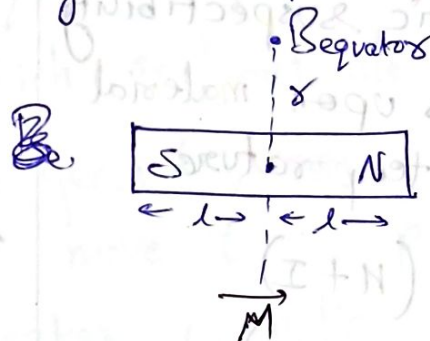 Bequator
r
S N
← l → ← l →
M